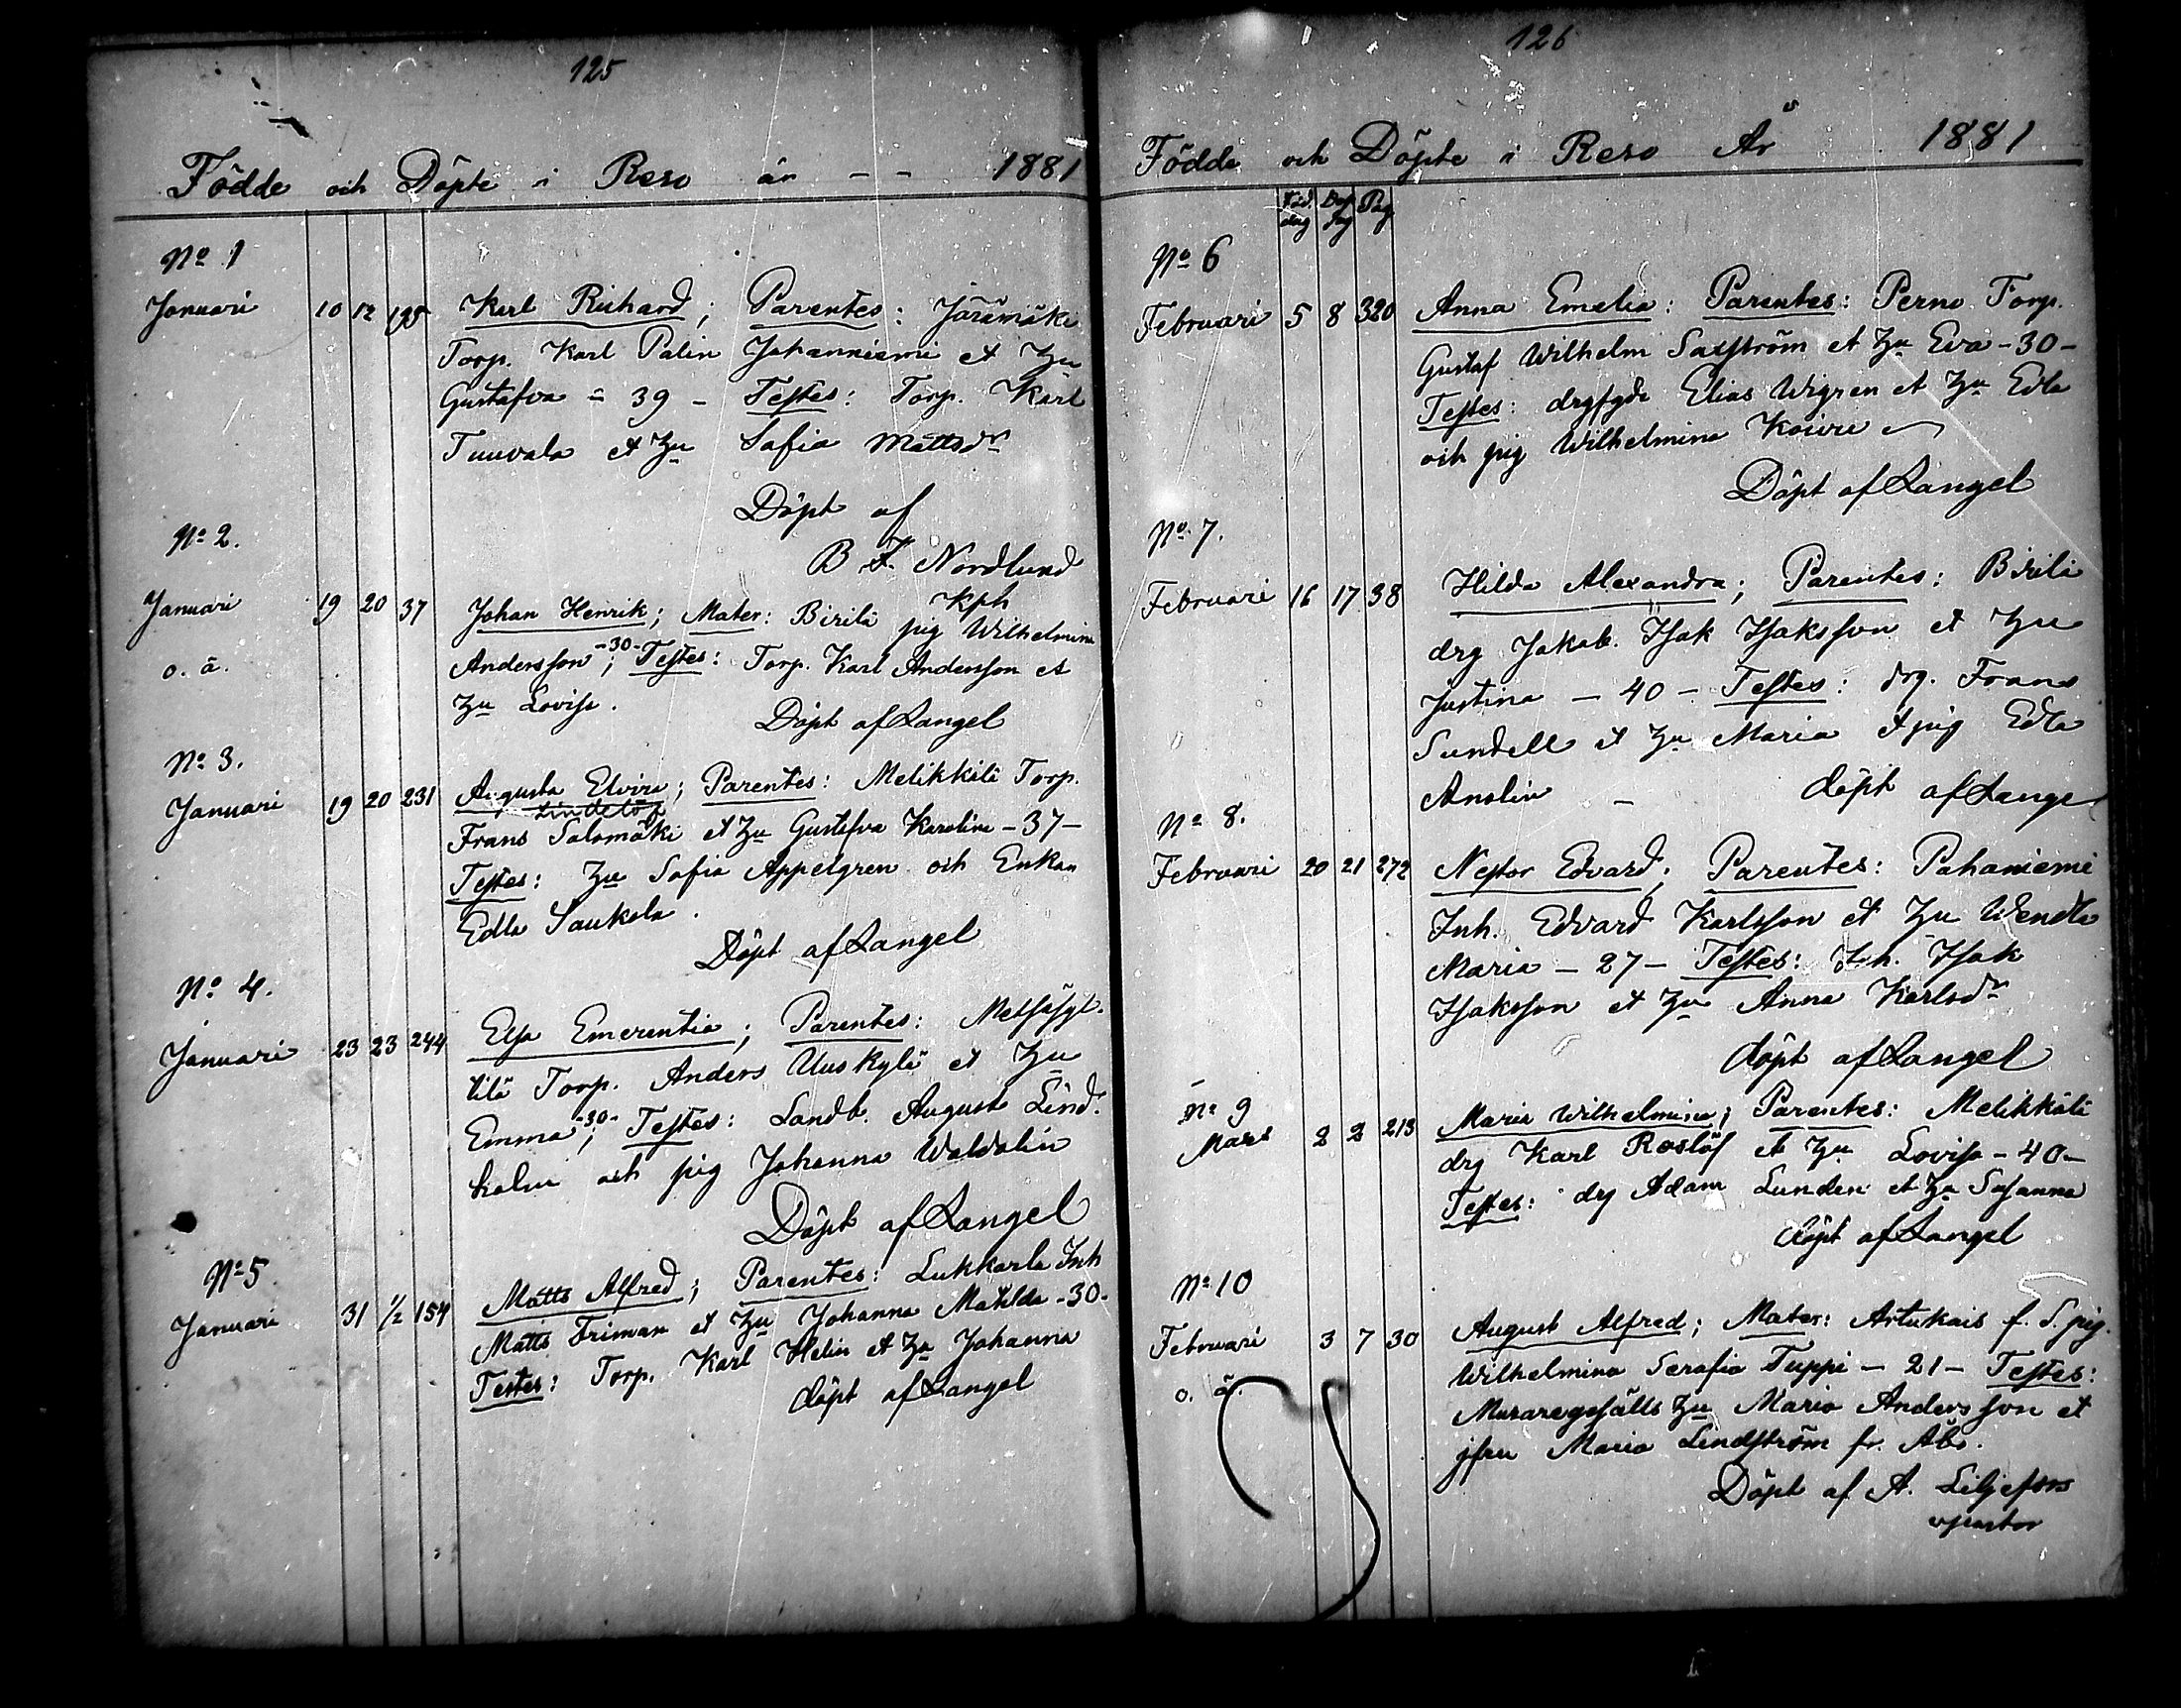 125
Födde och Döpte i Reso år - - 1881
No 1
Januari 10 12 195 Karl Richard; Parentes: Järämäki
Torp. Karl Palin Johanniemi et Hu
Gustafva - 39 - Testes: Torp. Karl
Tuuvala et Hu Sofia Mattsdr
Döpt af
B F. Nordlund
No 2.
Januari 19 20 37 Johan Henrik; Mater: Birilä Kph pig Wilhelmina
o. ä. Andersson -30-; Testes: Torp. Karl Andersson et
Hu Lovisa. Döpt af Langel
No 3.
Januari 19 20 231 Augusta Elvira; Parentes: Melikkälä Torp.
Lindelöf
Frans Salomäki et Hu Gustafva Karolina - 37 -
Testes: Hu Sofia Appelgren och Enkan
Edla Saukola.
Döpt af Langel
No 4.
Januari 23 23 244 Elsa Emerentia; Parentes: Metsäsyl-
tilä Torp. Anders Uuskylä et Hu
Emma -30-; Testes: Landb. August Lind-
holm och pig Johanna Waldolin
Döpt af Langel
No 5
Januari 31 1/2 154 Matts Alfred; Parentes: Lukkarla Inh
Matts Friman et Hu Johanna Matilda -30-
Testes: Torp. Karl Helin et Hu Johanna
döpt af Langel
126
Födde och Döpte i Reso År 1881
Föd. dag Döp dag Pag
No 6
Februari 5 8 320 Anna Emelia: Parentes: Perno Torp.
Gustaf Wilhelm Saxström et Hu Eva - 30 -
Testes: Elias Wigren et Hu Edla
och pig Wilhelmina Koivu
Döpt af Langel
No 7.
Februari 16 17 38 Hilda Alexandra; Parentes: Birilä
drg Jakob. Isak Isaksson et Hu
Justina - 40 - Testes: drg. Frans
Sundell et Hu Maria et pig Edla
Anolin - döpt af Lange
No 8.
Februari 20 21 272 Nestor Edvard; Parentes: Pahaniemi
Inh. Edvard Karlsson et Hu Wendla
Maria - 27 - Testes: Inh. Isak
Isaksson et Hu Anna Karlsdr
döpt af Langel
No 9
Mars 2 2 213 Maria Wilhelmina; Parentes: Melikkälä
drg Karl Roslöf et Hu Lovisa - 40 -
Testes: drg Adam Lunden et Hu Susanna
döpt af Langel
No 10
Februari 3 7 30 August Alfred; Mater: Artukais f. S. pig.
o. ä. Wilhelmina Serafia Tuppi - 21 - Testes:
Muraregesälls Hu Maria Andersson et
jfru Maria Lindström fr. Åbo.
Döpt af A. Liljefors
vpastor